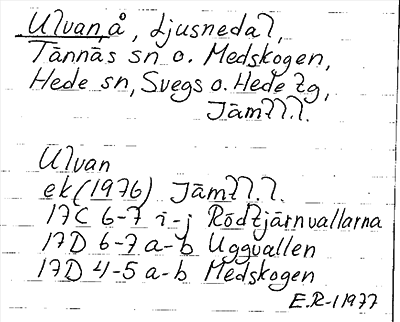 Ulvan, å, Ljusnedal,
Tännäs sn o. Medskogen,
Hede sn, Svegs o. Hede tg,
Jämtl.l.
Ulvan
ek (1976) Jämtl.l.
17C 6-7 i-j Rödtjärnvallarna
17D 6-7 a-b Uggvallen
17D 4-5 a-b Medskogen
E.R-l 1977